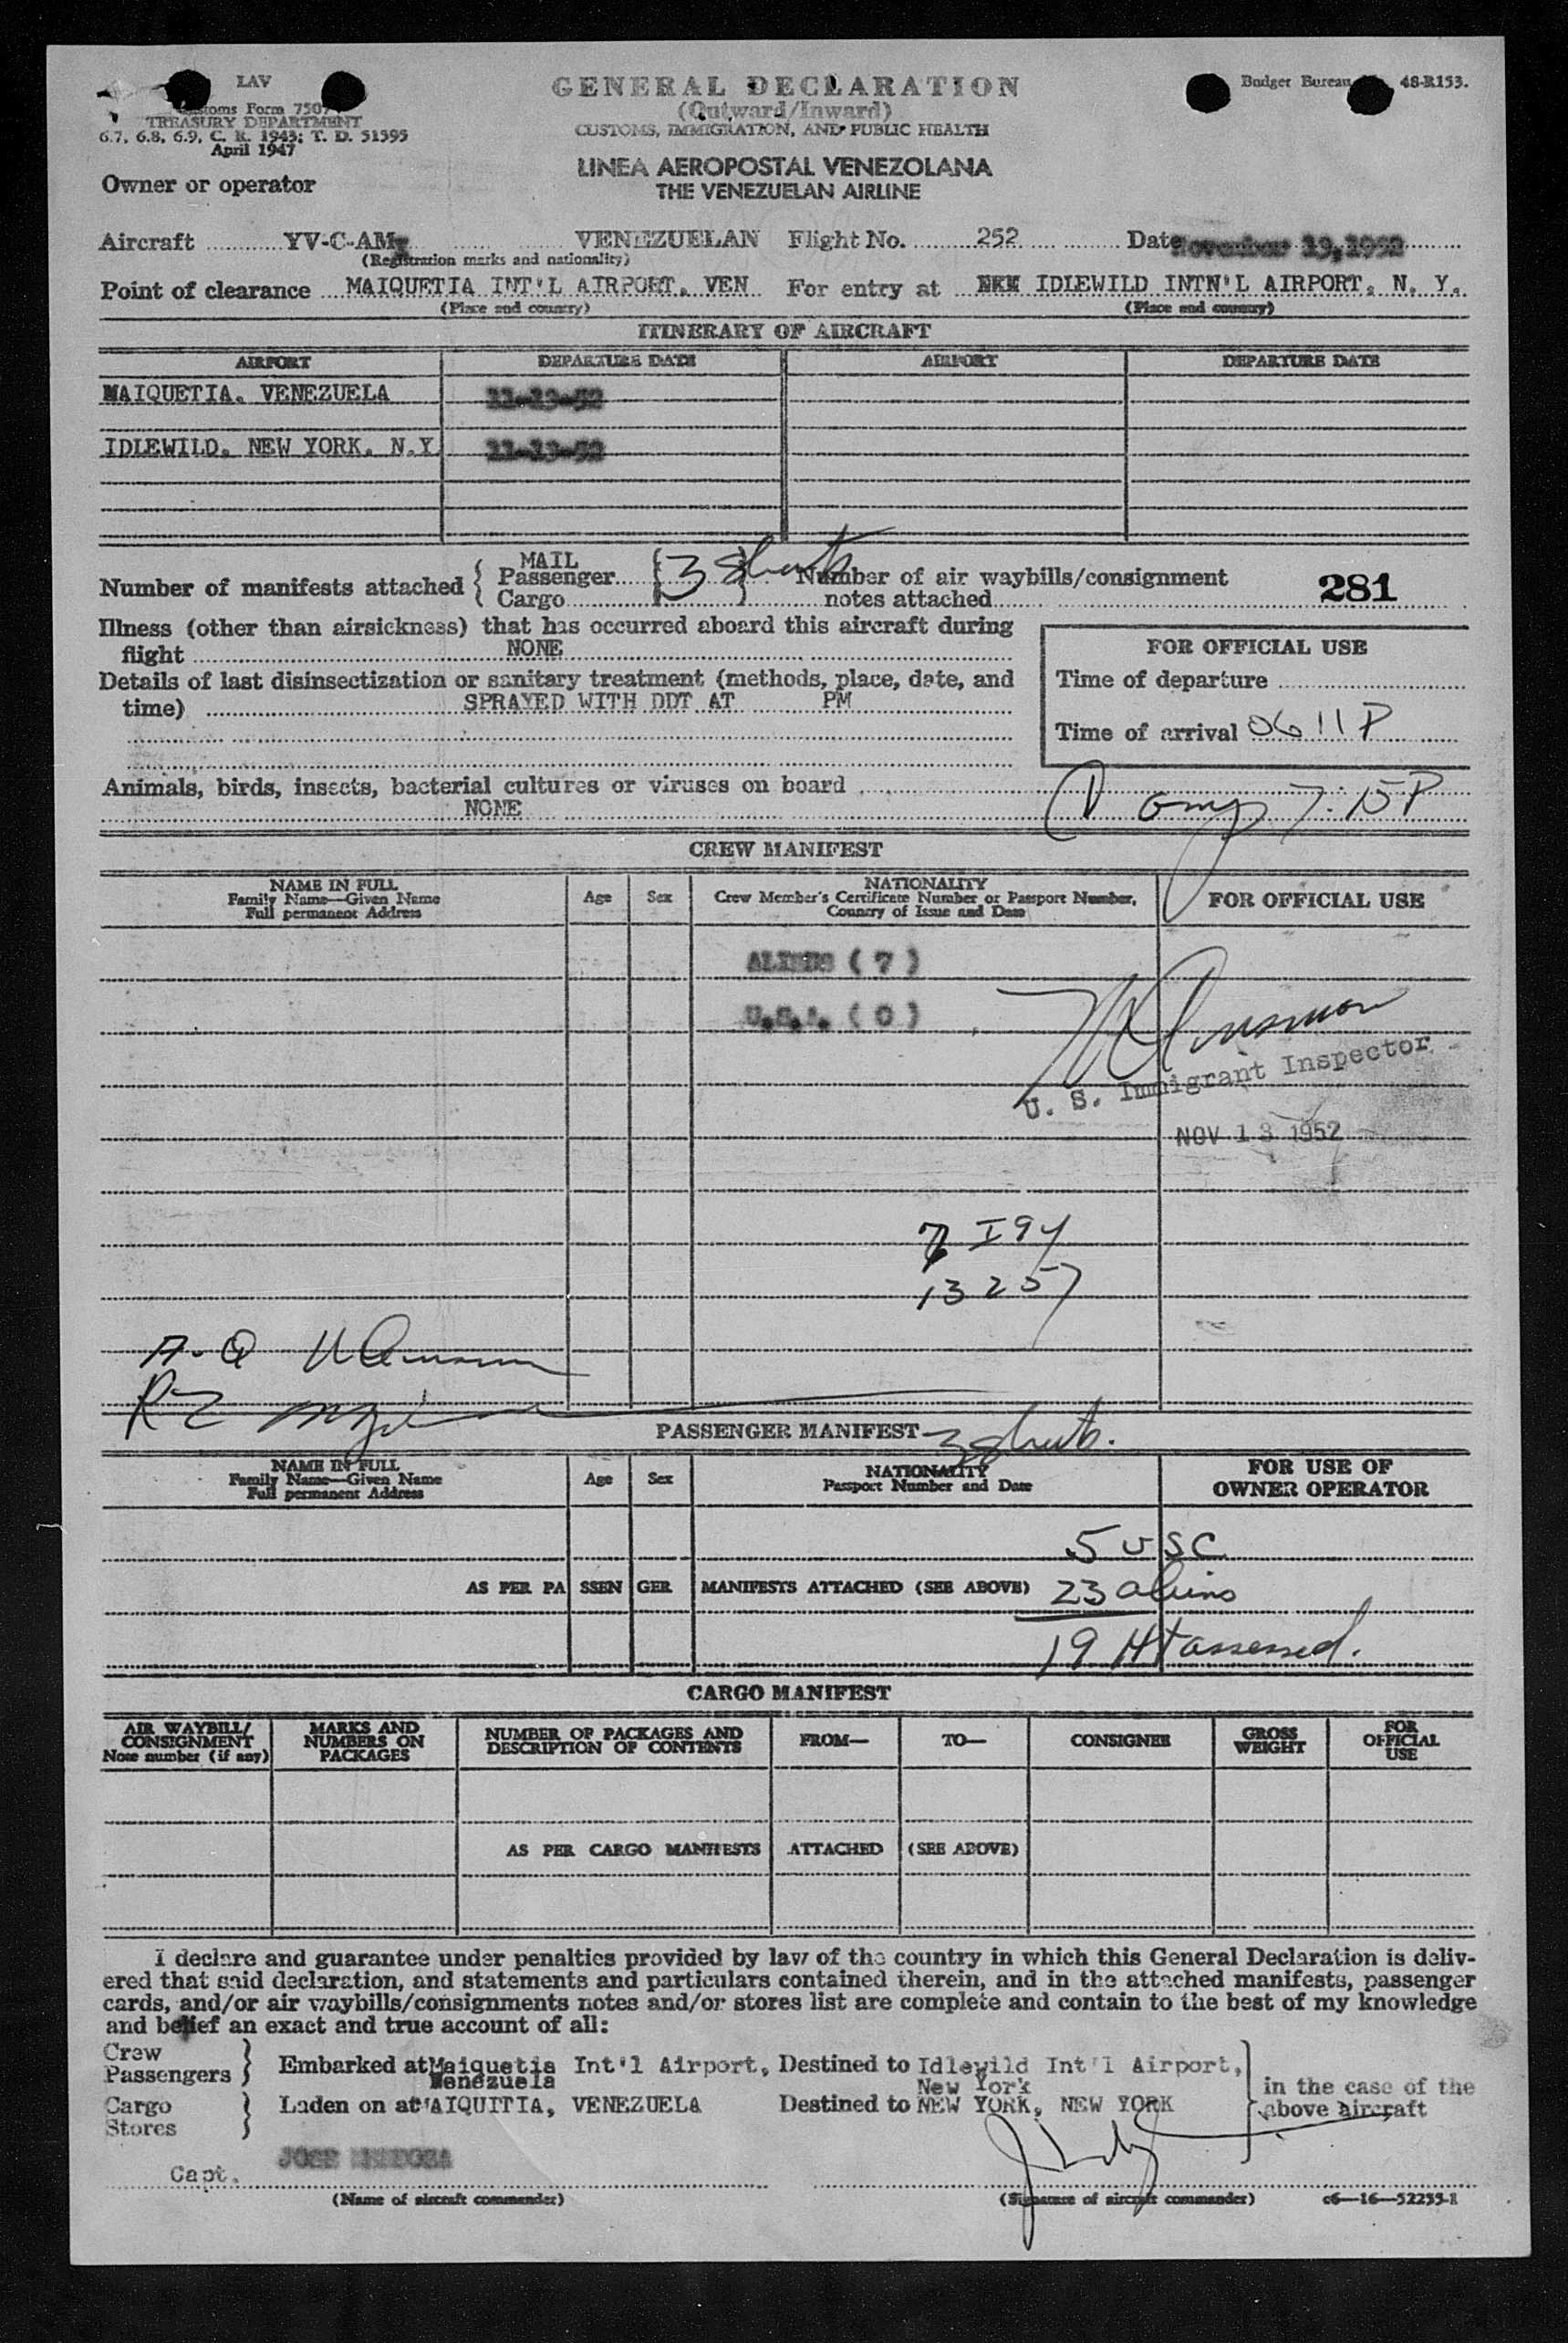 LAV
Customs Form 7507
TREASURY DEPARTMENT
6.7, 6.8, 6.9, C. R. 1943; T. D. 51595
April 1947
GENERAL DECLARATION
(Outward/Inward)
CUSTOMS, IMMIGRATION, AND PUBLIC HEALTH
LINEA AEROPOSTAL VENEZOLANA
THE VENEZUELAN AIRLINE
Budget Bureau 48-R153.
Owner or operator
Aircraft YV-C-AM VENEZUELAN Flight No. 252 Date November 13, 1952
(Registration marks and nationality)
Point of clearance MAIQUETIA INT'L AIRPORT. VEN For entry at IDLEWILD INTN'L AIRPORT. N. Y.
(Place and country) (Place and country)
ITINERARY OF AIRCRAFT
AIRPORT DEPARTURE DATE AIRPORT DEPARTURE DATE
MAIQUETIA. VENEZUELA 11-13-52
IDLEWILD. NEW YORK. N.Y. 11-13-52
Number of manifests attached { MAIL
Passenger
Cargo
3 sheets
Number of air waybills/consignment
notes attached 281
Illness (other than airsickness) that has occurred aboard this aircraft during
flight NONE
Details of last disinsectization or sanitary treatment (methods, place, date, and
time) SPRAYED WITH DDT AT PM
FOR OFFICIAL USE
Time of departure
Time of arrival 0611P
Animals, birds, insects, bacterial cultures or viruses on board
NONE
7:15P
CREW MANIFEST
NAME IN FULL
Family Name—Given Name
Full permanent Address
Age
Sex
NATIONALITY
Crew Member's Certificate Number or Passport Number,
Country of Issue and Date
FOR OFFICIAL USE
ALIENS ( 7 )
U.S.A. ( 0 )
U. S. Immigrant Inspector
NOV 13 1952
7 I94
13257
A-Q
RZ
PASSENGER MANIFEST 3 sheets.
NAME IN FULL
Family Name—Given Name
Full permanent Address
Age
Sex
NATIONALITY
Passport Number and Date
FOR USE OF
OWNER OPERATOR
5 USC
AS PER PASSENGER MANIFESTS ATTACHED (SEE ABOVE) 23 aliens
19 Ht assessed.
CARGO MANIFEST
AIR WAYBILL/
CONSIGNMENT
Note number (if any)
MARKS AND
NUMBERS ON
PACKAGES
NUMBER OF PACKAGES AND
DESCRIPTION OF CONTENTS
FROM—
TO—
CONSIGNEE
GROSS
WEIGHT
FOR
OFFICIAL
USE
AS PER CARGO MANIFESTS ATTACHED (SEE ABOVE)
I declare and guarantee under penalties provided by law of the country in which this General Declaration is deliv-
ered that said declaration, and statements and particulars contained therein, and in the attached manifests, passenger
cards, and/or air waybills/consignments notes and/or stores list are complete and contain to the best of my knowledge
and belief an exact and true account of all:
Crew
Passengers } Embarked at Maiquetia Int'l Airport, Destined to Idlewild Int'l Airport,
Venezuela New York
Cargo
Stores } Laden on at MAIQUITIA, VENEZUELA Destined to NEW YORK, NEW YORK
in the case of the
above aircraft
Capt. JOSE MENDOZA
(Name of aircraft commander) (Signature of aircraft commander) c6—16—52255-1